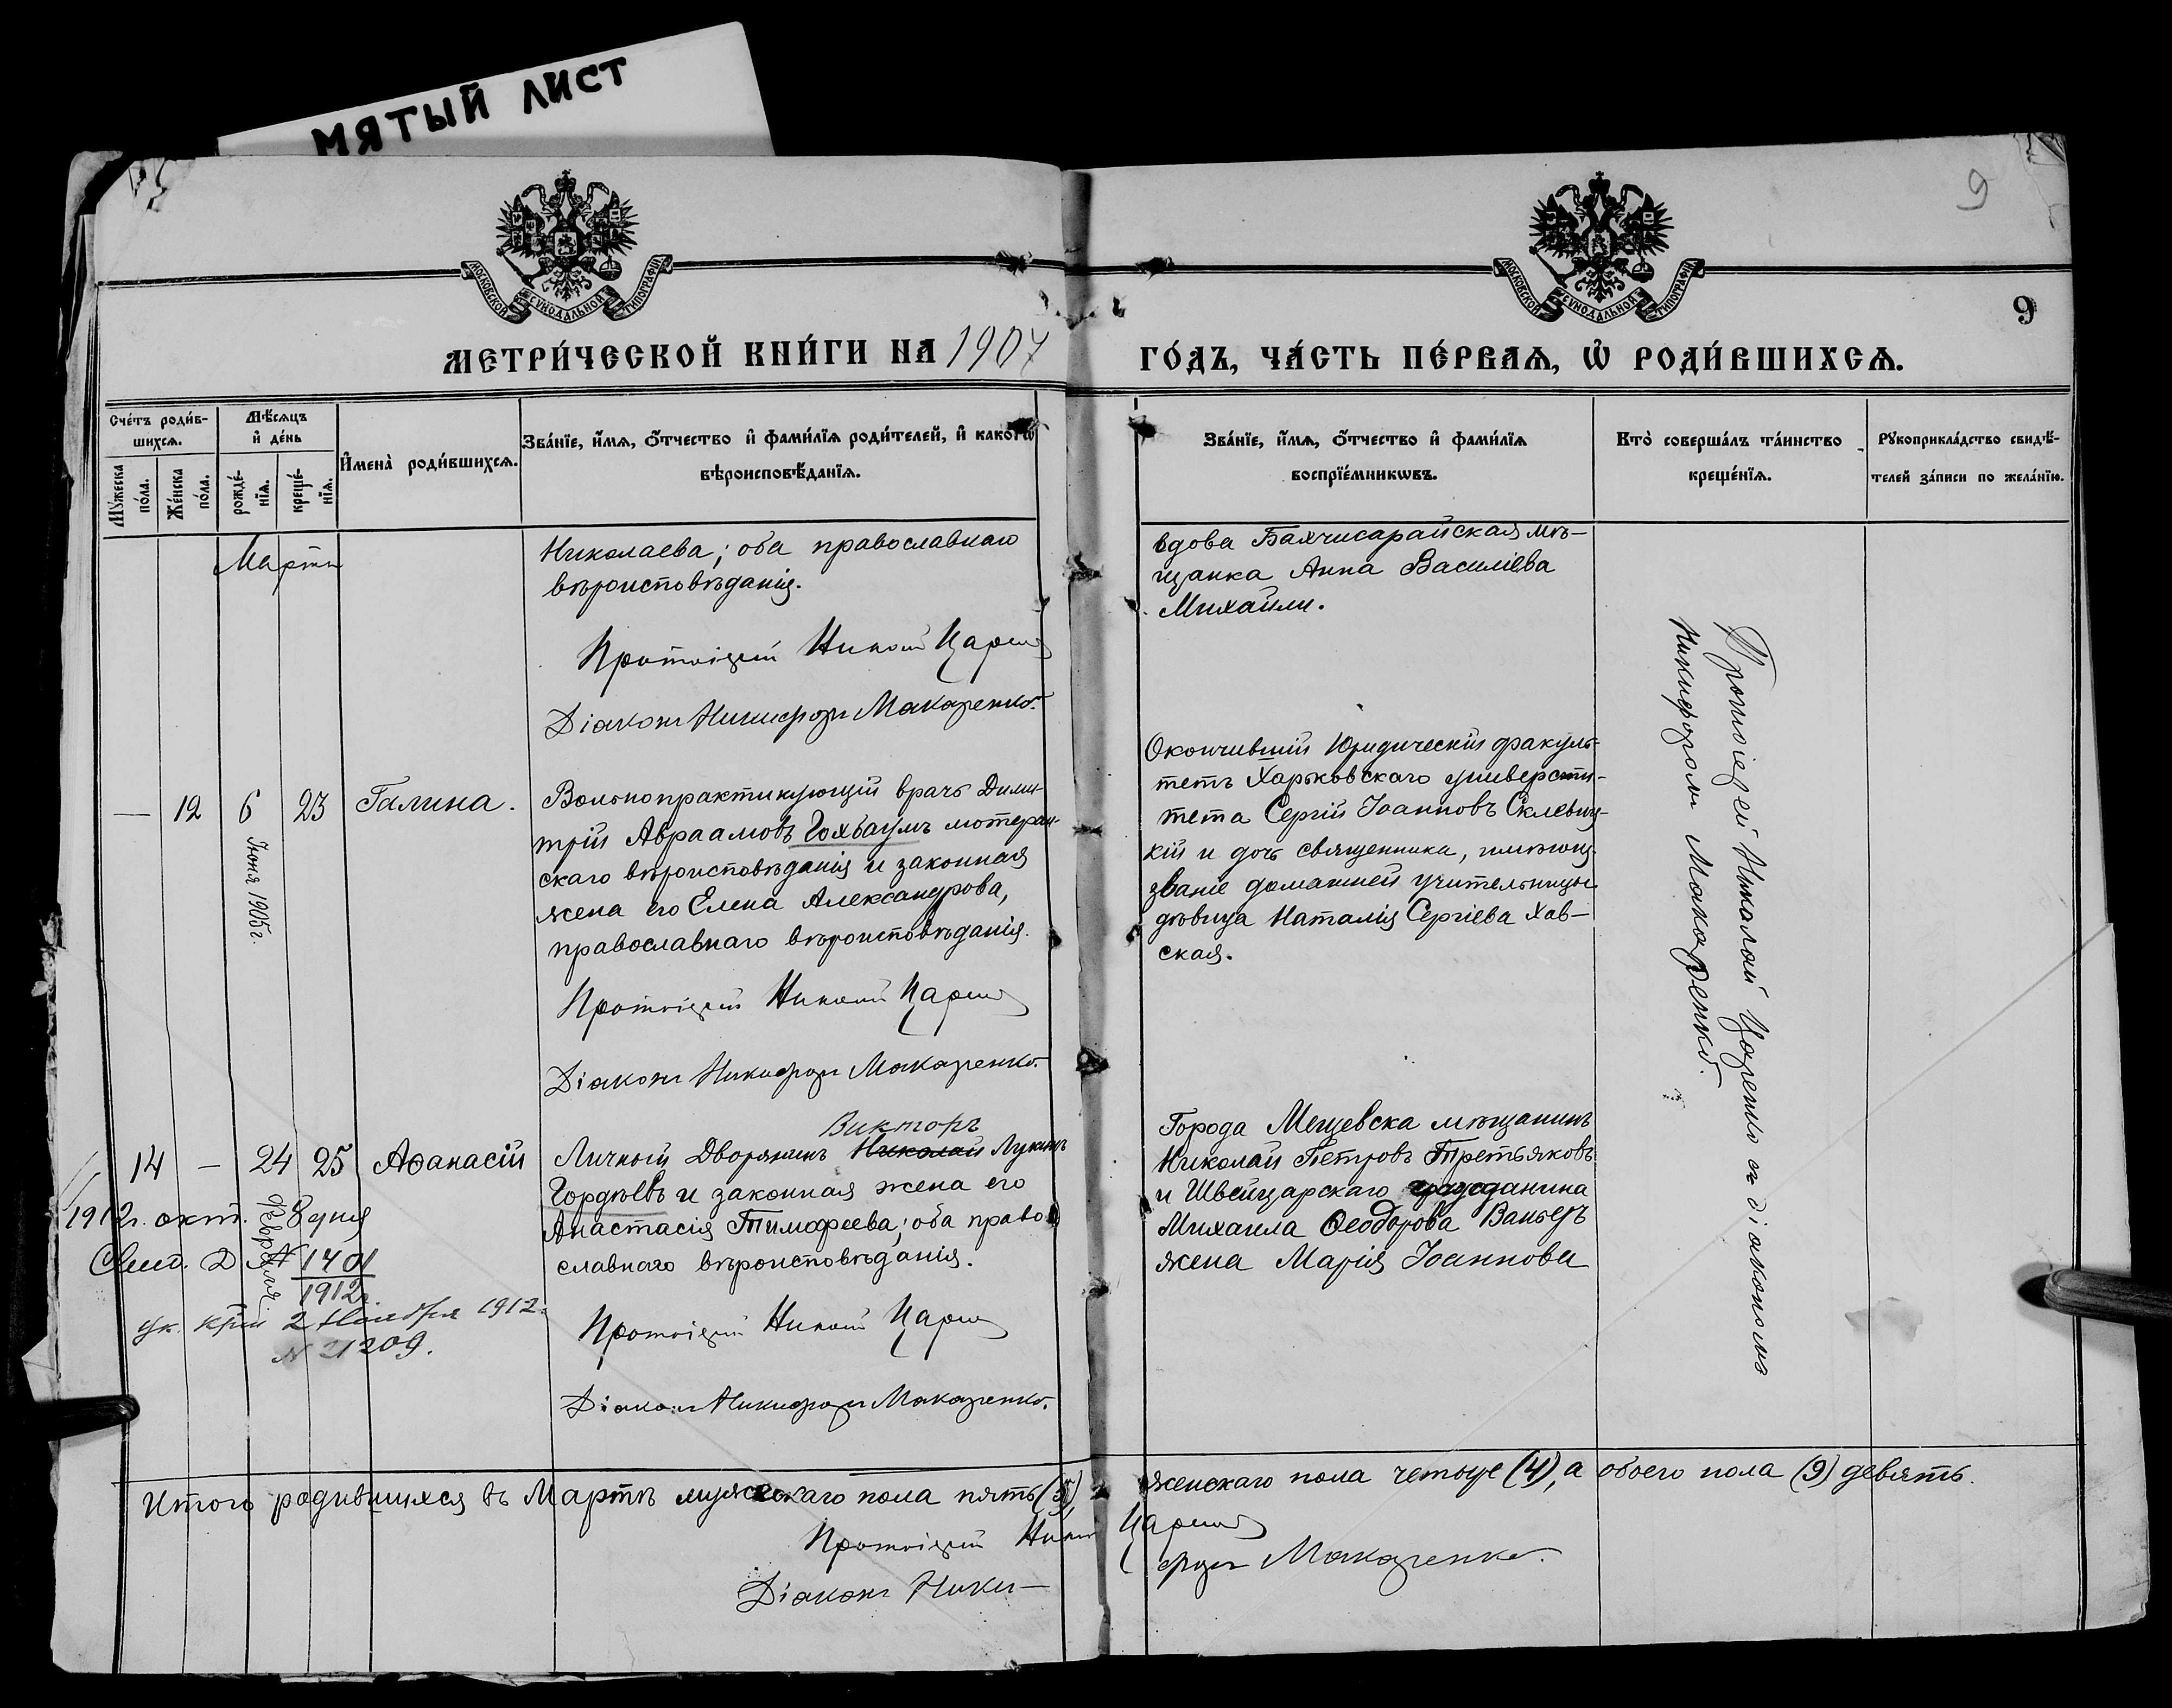 МЯТЫЙ ЛИСТ
МОСКОВСКОЙ СУНОДАЛЬНОЙ ТИПОГРАФІИ
МОСКОВСКОЙ СУНОДАЛЬНОЙ ТИПОГРАФІИ
9
9
МЕТРИ́ЧЕСКОЙ КНИ́ГИ НА 1907 ГО́ДЪ, ЧА́СТЬ ПЕ́РВАѦ, Ѡ҆ РОДИ́ВШИХСѦ.
Сче́тъ роди́в-
шихсѧ.
Мѣ́сѧцъ
и҆ де́нь
Мꙋ́жеска
по́ла.
Же́нска
по́ла.
рожде́-
нїѧ.
креще́-
нїѧ.
И҆мена̀ роди́вшихсѧ.
Зва́нїе, и҆́мѧ, ѻ҆́тчество и҆ фами́лїѧ роди́телей, и҆ како́гѡ
вѣроисповѣ́данїѧ.
Зва́нїе, и҆́мѧ, ѻ҆́тчество и҆ фами́лїѧ
воспрїе́мникѡвъ.
Кто̀ соверша́лъ та́инство
креще́нїѧ.
Рꙋкоприкла́дство свидѣ́-
телей за́писи по жела́нїю.
Мартъ
Николаева; оба православнаго
вѣроисповѣданія.
Протоіерей Николай Царенко
Діаконъ Никифоръ Макаренко.
вдова Бахчисарайская мѣ-
щанка Анна Василіева
Михайли.
— 12 6 23 Галина.
Іюня 1905 г.
Вольнопрактикующій врачъ Дими-
трій Авраамовъ Гохбаумъ лютеран-
скаго вѣроисповѣданія и законная
жена его Елена Александрова,
православнаго вѣроисповѣданія.
Протоіерей Николай Царенко
Діаконъ Никифоръ Макаренко.
Окончившій Юридическій факуль-
тетъ Харьковскаго университи-
тета Сергій Іоанновъ Склевиц-
кій и дочь священника, имѣющ.
званіе домашней учительницы
дѣвица Наталія Сергіева Хав-
ская.
Протоіерей Николай Царенко съ діакономъ
Никифоромъ Макаренко.
14 — 24 25 Аѳанасій
Февраля
Викторъ
Личный Дворянинъ Николай Лукинъ
Гордѣевъ и законная жена его
Анастасія Тимофеева; оба право-
славнаго вѣроисповѣданія.
Протоіерей Николай Царенко
Діаконъ Никифоръ Макаренко.
1912г. окт. 8 дня
Свид. д. № 1401
1912г.
ук. 2 Ноября 1912.
N 21209.
Города Мещевска мѣщанинъ
Николай Петровъ Третьяковъ
и Швейцарскаго гражданина
Михаила Ѳеодорова Ваньеръ
жена Марія Іоаннова
Итого родившихся въ Мартѣ мужескаго пола пять (5), женскаго пола четыре (4), а обоего пола (9) девять.
Протоіерей Николай Царенко
Діаконъ Ники- форъ Макаренко.